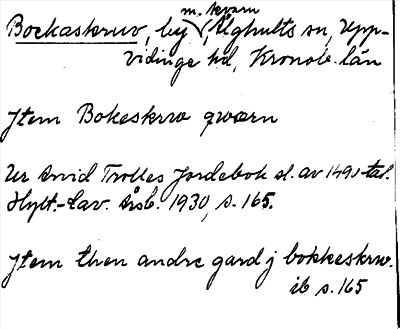 m. kvarn
Bockaskruv, by, Älghults sn, Upp-
vidinge hd, Kronob. län
Jtem Bokeskrw qwærn
Ur Arvid Trolles Jordebok sl. av 1490-tal.
Hylt.-Cav. Årsb. 1930, s. 165.
Jtem then andre gard j bokkeskrw.
ib s. 165